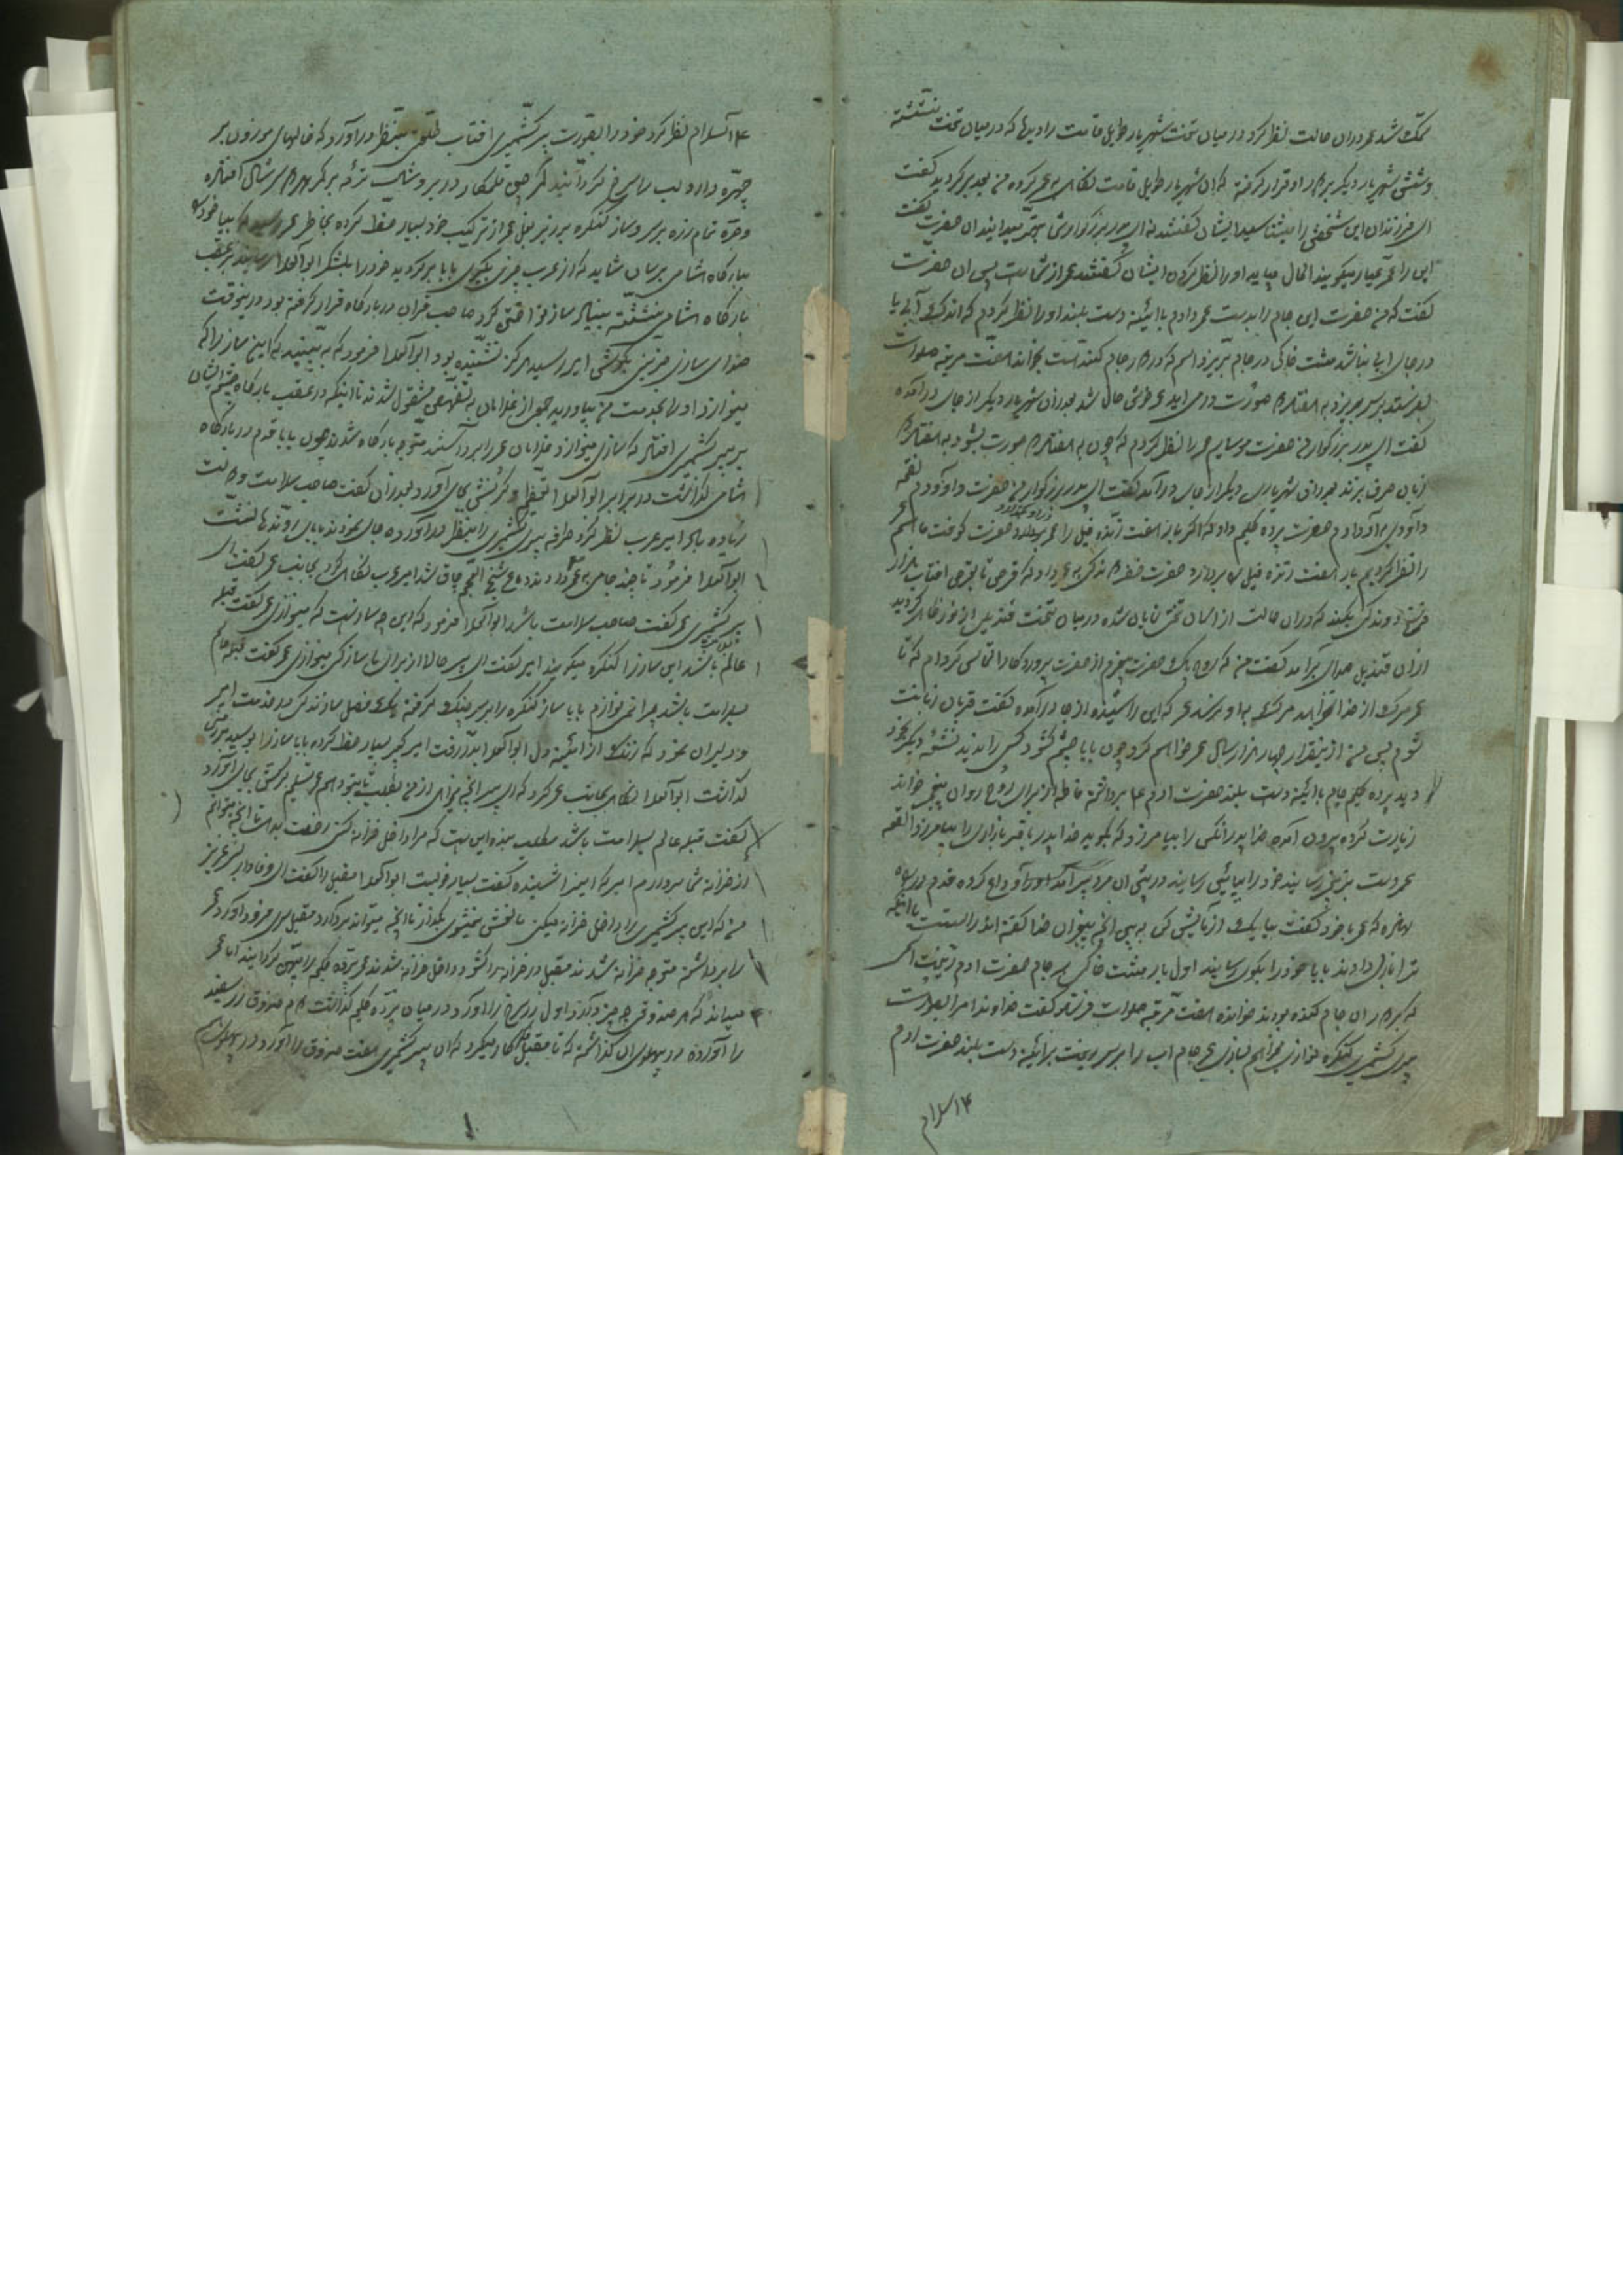 شد عمر دران حالت نظر کرد در میان تخت شهریار طویل قامت را دید که در میان تخت نشسته
وشش شهریار دیگر بر او قرار گرفته که ان شهریار طویل قامت نگاه به عمر کرده من بعد بر کردید گفت
ای فرزندان این شخص را میشناسید ایشان گفتند که ای پدر بزرگوار شما بهتر میدانید ان حضرت گفت
این را عمر عیار میگویند الحال میباید او را نظر کردن ایشان گفتند عمر از شماست پس ان حضرت
گفت که من حضرت این جام را بدست عمر دادم با آئینه دست بلند او را نظر کردم که اندک آبی یا
در جای آبی نباشد مشت خاکی در جام بریزد اسم که در جام کنده است بخواند هفت مرتبه صلوات
بفرستد بر سر بریزد به هفتاد صورت در می اید عمر خوش حال شد بعد ازان شهریار دیگر از جای درآمده
گفت ای پدر بزرگوار من حضرت موسایم عمر را نظر کردم که چون به هفتاد صورت بشود به هفتاد
زبان حرف بزند بعد ازان شهریاری دیگر از جای درآمد گفت ای پدر بزرگوار من حضرت داوودم نغمه
داوودی به او دادم حضرت پرده گلیم داد که اگر بار هفت زنده فیل را عمر بردارد حضرت گفت ما هم
را نظر کردیم بار هفت زنده فیل را بردارد حضرت خضر به عمر داد که قرص تا بقرص افتاب هزار
فرسخ دوندگی بکند که دران حالت از اسمان تختی نمایان شده در میان تخت قندیل از نور ظاهر کردید
ازان قندیل صدای برآمد گفت من که روح پاک حضرت پیغمبرم از حضرت پروردگار التماس کردم که تا
عمر مرگ از خدا نخواهد مرگ به او نرسد عمر که این را شنیده از جا درآمده گفت قربان زبانت
شوم پس من ازینقرار چهار هزار سال عمر خواهم کرد چون بابا چشم کشود کسی را ندید نشئه دیگر بخود
دید پرده گلیم جام با آئینه دست بلند حضرت ادم را برداشته فاتحه از برای روح روان پیغمبر خوانده
زیارت کرده بیرون آمده خدا پدر انکسی را بیامرزد که بگوید خدا پدر باقر بازاری را بیامرزد القصه
عمر دست بزنجیر رسانیده خود را بپائین رسانیده در پیش ان مرد پیر آمد او را وداع کرده قدم در راه
نهاده که عمر با خود گفت بیا یک ازمایش کن به بین انچه پیغمبران خدا گفته اند راست است یا انکه
ترا بازی دادند بابا خود را بکوی رسانید اول بار مشت خاکی بر جام حضرت ادم ریخت اسمی
که بر دوران جام کنده بودند خوانده هفت مرتبه صلوات فرستاد گفت خداوندا مرا بصورت
پیری کشمیری کنگره نوازی بسازی عمر جام اب را بر سر ریخت بر آئینه دست بلند حضرت ادم
السلام
السلام نظر کرد خود را بصورت پیر کشمیری افتاب طلعتی بنظر درآورد که خالهای موزون بر
چهره دارد لب را سرخ کردانیده قلمکار در بر و شال ترمه بر کمر شال
و خرقه تمام زده بر سر و ساز کنگره بر زیر بغل عمر از ترکیب خود بسیار حظ کرده بخاطر عمر رسید که بیا خود را
ببارکاه شامی برسان شاید که از عرب چیزی بگیری بابا برکردید خود را بلشکر ابوالعلا رسانید بر عقب
بارکاه شامی نشسته بنیاد ساز نواختن کرد صاحب قران در بارکاه قرار گرفته بود درینوقت
صدای سازی حزین بگوش امیر رسید که هرکز نشنیده بود ابوالعلا فرمود که به بینید که اینچ ساز را که
مینوازد او را بخدمت من بیاورید جمعی از غلامان به تفحص مشغول شدند تا اینکه در عقب بارکاه چشم ایشان
بر پیر کشمیری افتاد که سازی مینوازد غلامان عمر را برداشتند متوجه بارکاه شدند چون بابا قدم در بارکاه
شامی گذاشت در برابر ابوالعلا تعظیم و کرنش بجای آورد بعد ازان گفت صاحب سلامت دولت
زیاده باد امیر عرب نظر کرد طرفه پیر کشمیری را بنظر درآورده جای نمودند بابای روندها نشست
ابوالعلا فرمود تا چند جامی به عمر دادند دماغ شیخ چاق شد امیر عرب نگاه کرد بجانب عمر گفت ای
پیر کشمیری عمر گفت صاحب سلامت باشد ابوالعلا فرمود که این چه ساز است که مینوازی عمر گفت قبله
عالم باشد این ساز را کنگره میگویند امیر گفت ای پیر حالا از برای ما ساز کی مینوازی عمر گفت قبله عالم
سلامت باشد چرا نمی نوازم بابا ساز کنگره را بر سر چنگ گرفته یک فصل سازندگی در خدمت امیر
و دلیران نمود که زنگ از آئینه دل ابوالعلا بدر رفت امیر کبیر بسیار حظ کرده بابا ساز را بوسید بر زمین
گذاشت ابوالعلا نگاه بجانب عمر کرد که ای پیر انچه میخواهی از من بطلب تا بتو دهم عمر تسلیم کرنش بجای آورد
گفت قبله عالم سلامت باشد مطلب بنده این است که مرا داخل خزانه کنی رخصت بدهی تا انچه بتوانم
از خزانه شما بردارم امیر که این را شنیده گفت بسیار خوبست ابوالعلا مقبل را گفت ای وفادار عزیز
من که این پیر کشمیری را داخل خزانه میکنی بگذار تا انچه میتواند بردارد مقبل فرود آورد عمر
را برداشته متوجه خزانه شدند مقبل در خزانه را کشود داخل خزانه شدند عمر پرده گلیم را پهن کردانید اما عمر
میداند که هر صندوقی چه چیز دارد اول زر سرخ را آورد در میان پرده گلیم گذاشت هم صندوق زر سفید
را آورده در پهلوی ان گذاشته که تا مقبل نگاه میکرد که ان پیر کشمیری هفت صندوق را آورد در پهلوی هم